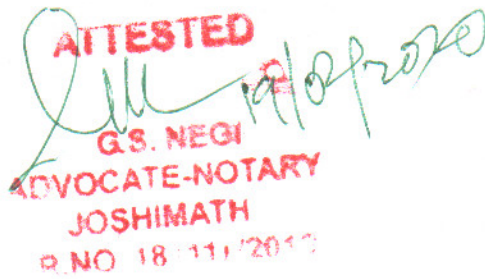 ATTESTED
19/02/2020
G.S. NEGI
ADVOCATE-NOTARY
JOSHIMATH
R.NO 18